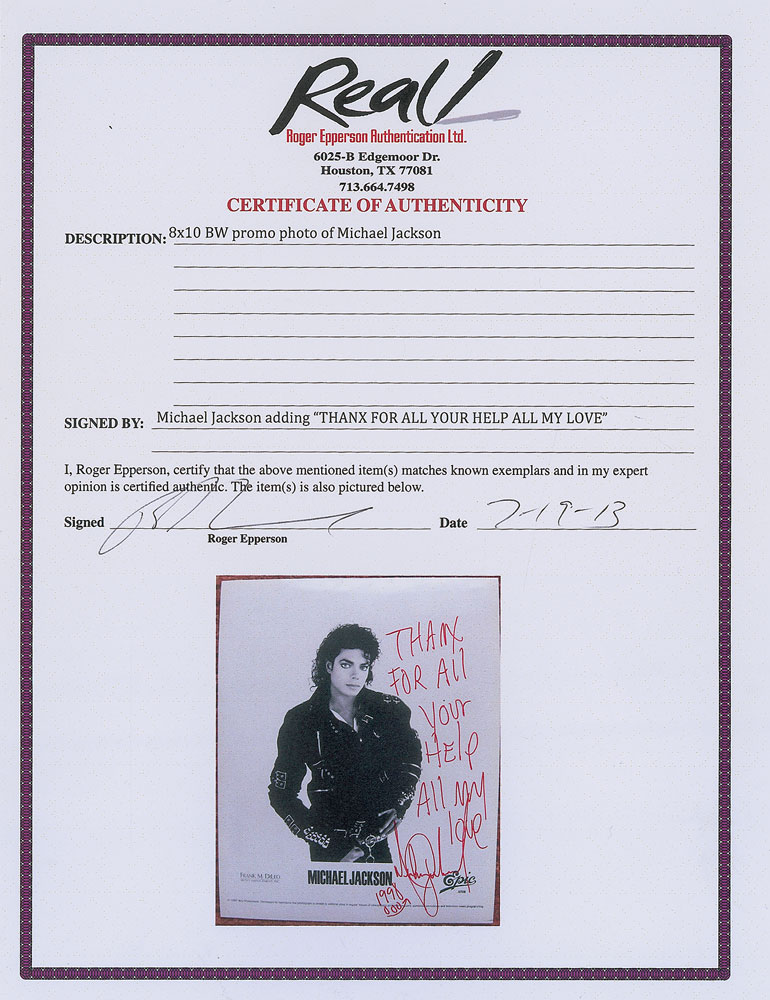 Real
Roger Epperson Authentication Ltd.
6025-B Edgemoor Dr.
Houston, TX 77081
713.664.7498
CERTIFICATE OF AUTHENTICITY
DESCRIPTION: 8x10 BW promo photo of Michael Jackson
SIGNED BY: Michael Jackson adding “THANX FOR ALL YOUR HELP ALL MY LOVE”
I, Roger Epperson, certify that the above mentioned item(s) matches known exemplars and in my expert
opinion is certified authentic. The item(s) is also pictured below.
Signed
Date 7-19-13
Roger Epperson
THANX
FOR All
YOUR
HElP
All my
love
FRANK M. DILEO
MICHAEL JACKSON
Epic
1998